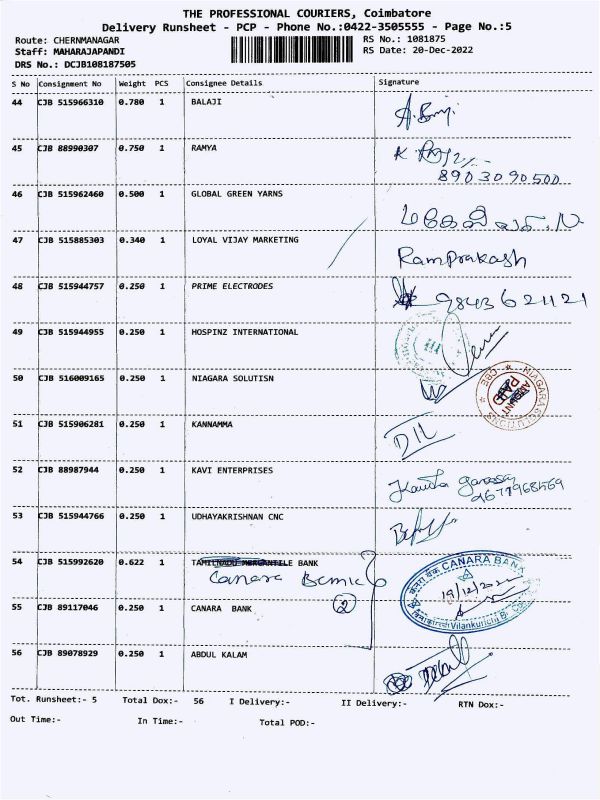 THE PROFESSIONAL COURIERS, Coimbatore
Delivery Runsheet - PCP - Phone No.:0422-3505555 - Page No.:5
Route: CHERNMANAGAR RS No.: 1081875
Staff: MAHARAJAPANDI RS Date: 20-Dec-2022
DRS No.: DCJB108187505
S No Consignment No Weight PCS Consignee Details Signature
44 CJB 515966310 0.780 1 BALAJI
45 CJB 88990307 0.750 1 RAMYA
8903090500
46 CJB 515962460 0.500 1 GLOBAL GREEN YARNS
47 CJB 515885303 0.340 1 LOYAL VIJAY MARKETING Ramprakash
48 CJB 515944757 0.250 1 PRIME ELECTRODES 9843621121
49 CJB 515944955 0.250 1 HOSPINZ INTERNATIONAL
50 CJB 516009165 0.250 1 NIAGARA SOLUTISN NIAGARA SOLUTIONS CBE
51 CJB 515906281 0.250 1 KANNAMMA DIL
52 CJB 88987944 0.250 1 KAVI ENTERPRISES
53 CJB 515944766 0.250 1 UDHAYAKRISHNAN CNC
54 CJB 515992620 0.622 1 TAMILNADU MERCANTILE BANK
Canara Bank CANARA BANK
55 CJB 89117046 0.250 1 CANARA BANK 2 Vilankurichi Br
56 CJB 89078929 0.250 1 ABDUL KALAM
Tot. Runsheet:- 5 Total Dox:- 56 I Delivery:- II Delivery:- RTN Dox:-
Out Time:- In Time:- Total POD:-